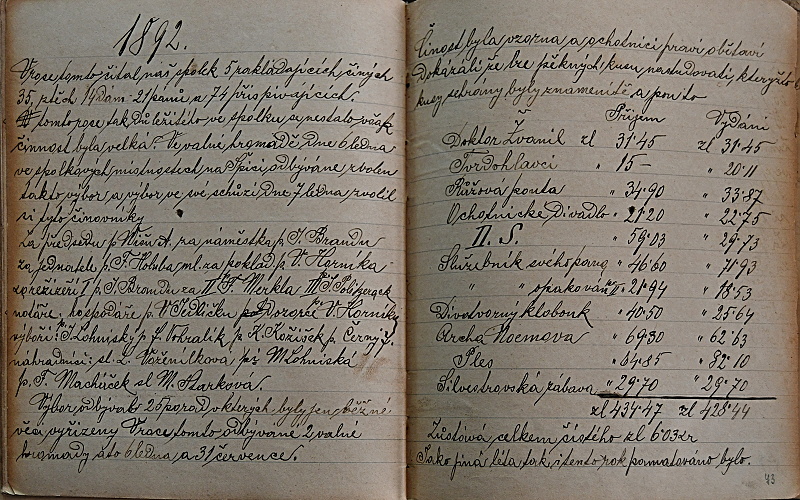 1892.
V roce tomto čítal náš spolek 5 zakládajících činných
35, z těch 14 dám - 21 pánů a 74 přispívajících.
V tomto roce tak důležitého ve spolku se nestalo však
činnost byla velká. Ve valné hromadě dne 6 ledna
ve spolkových místnostech na Špici odbývané zvolen
takto výbor, a výbor ve své schůzi dne 7 ledna zvolil
si tyto činovníky
Za předsedu p. A. za náměstka p. J. Brandu
za jednatele p. F. Holuba ml. za poklad. p. V. Horníka -
za režizéři I p. J. Brandu za II F. Merkla III
notáře; hospodáře p. V. Jedličku Dozorce V. Horníka
výboři: J. Lohniský p. F. Vohralík p. K. Kožíšek p. Černý J.
náhradníci: sl. L. Voženílková, M. Lohniská
p. F. Macháček sl M. Starkova.
Výbor odbýval 25 porad v kterých byly jen běžné
věci vyřízeny V race tomto odbývané 2 valné
hromady a to 6 ledna a 31 července.
Činost byla vzorna a ochotníci praví obětaví
Dokázáli že lze pěkných kusu nastudovati, kteryžto
kusy sehrany byly znamenitě a po nito
Příjem Vydání
Doktor Žvanil zl 31·45 zl 31·45
Tvrdohlavci " 15 - " 20·11
Růžova pouta " 34·90 " 33·87
Ochotnicke Divadlo " 21·20 " 22·75
II. S. " 59·03 " 29·73
Služebník svého pana " 46·60 " 71·93
" " opakovaně II " 21·94 " 18·53
Divotvorný klobouk " 40·50 " 25·64
Archa Noemova " 69·30 " 62·63
Ples " 64·85 " 82·10
Silvestrovská zábava " 29·70 " 29·70
zl 434·47 zl 428·44
Zůstává celkem čistého zl 6·03 kr
Jako jiná léta tak i tento rok pamatováno bylo.
73